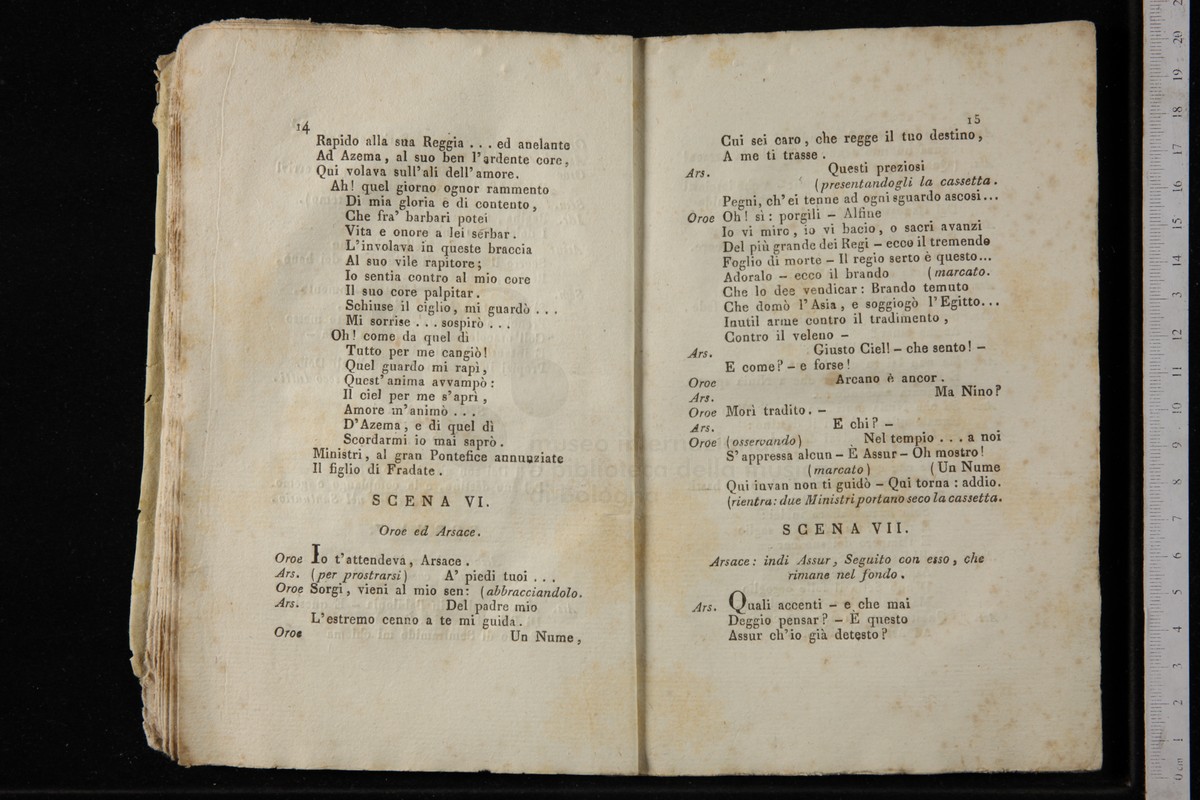 14
Rapido alla sua Reggia . . . ed anelante
Ad Azema, al suo ben l'ardente core,
Qui volava sull'ali dell'amore.
Ah! quel giorno ognor rammento
Di mia gloria e di contento,
Che fra' barbari potei
Vita e onore a lei serbar.
L'involava in queste braccia
Al suo vile rapitore;
Io sentia contro al mio core
Il suo core palpitar.
Schiuse il ciglio, mi guardò . . .
Mi sorrise . . . sospirò . . .
Oh! come da quel dì
Tutto per me cangiò!
Quel guardo mi rapì,
Quest' anima avvampò:
Il ciel per me s'aprì,
Amore m'animò . . .
D'Azema, e di quel dì
Scordarmi io mai saprò.
Ministri, al gran Pontefice annunziate
Il figlio di Fradate.
SCENA VI.
Oroe ed Arsace.
Oroe Io t'attendeva, Arsace.
Ars. (per prostrarsi) A' piedi tuoi . . .
Oroe Sorgi, vieni al mio sen: (abbracciandolo.
Ars. Del padre mio
L'estremo cenno a te mi guida.
Oroe Un Nume,
15
Cui sei caro, che regge il tuo destino,
A me ti trasse.
Ars. Questi preziosi
(presentandogli la cassetta.
Pegni, ch'ei tenne ad ogni sguardo ascosi...
Oroe Oh! sì: porgili – Alfine
Io vi miro, io vi bacio, o sacri avanzi
Del più grande dei Regi – ecco il tremendo
Foglio di morte – Il regio serto è questo...
Adoralo – ecco il brando (marcato.
Che lo dee vendicar: Brando temuto
Che domò l'Asia, e soggiogò l'Egitto...
Inutil arme contro il tradimento,
Contro il veleno –
Ars. Giusto Ciel! – che sento! –
E come? – e forse!
Oroe Arcano è ancor.
Ars. Ma Nino?
Oroe Morì tradito. –
Ars. E chi? –
Oroe (osservando) Nel tempio . . . a noi
S'appressa alcun – È Assur – Oh mostro!
(marcato) (Un Nume
Qui invan non ti guidò – Qui torna: addio.
(rientra: due Ministri portano seco la cassetta.
SCENA VII.
Arsace: indi Assur, Seguito con esso, che
rimane nel fondo.
Ars. Quali accenti – e che mai
Deggio pensar? – E questo
Assur ch'io già detesto?
museo inter
e biblioteca della musi
di Bologna
20
19
18
17
16
15
14
13
12
11
10
9
8
7
6
5
4
3
2
1
0 cm